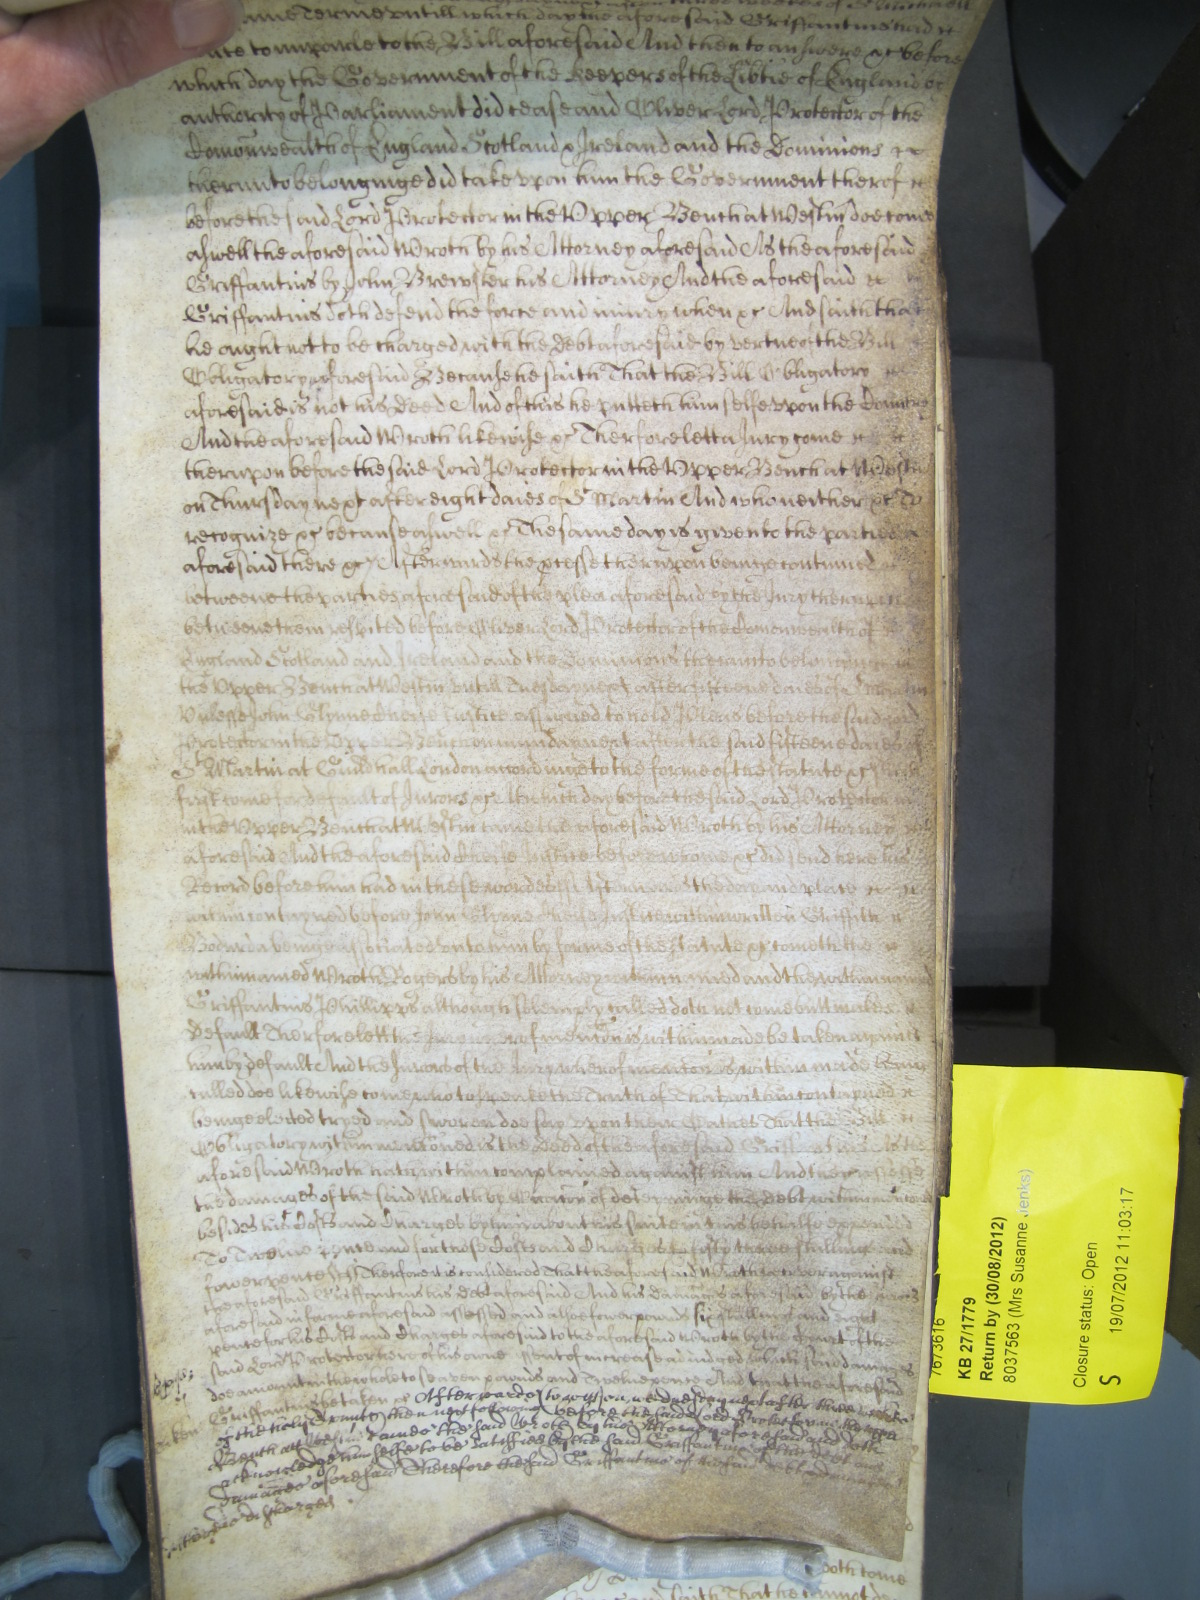 same Terme untill which day the aforesaid Griffantius had
to imparle to the Bill aforesaid And then to answere &c before
which day the Government of the Keepers of the Libtie of England
authority of Parliament did cease and Oliver Lord Protector of the
Comonwealth of England Scotland & Ireland and the Dominions
therunto belonginge did take upon him the Government therof
before the said Lord Protector in the Upper Bench at Westm doe come
aswell the aforesaid Wroth by his Attorney aforesaid As the aforesaid
Griffantius by John Brewster his Attorney And the aforesaid
Griffantius doth defend the force and iniury when &c And saith that
he ought not to be charged with the debt aforesaid by vertue of the Bill
Obligatory aforesaid Because he saith That the Bill Obligatory
aforesaid is not his Deed And of this he putteth himselfe upon the Countrie
And the aforesaid Wroth likewise &c Therfore lett a Jury come
therupon before the said Lord Protector in the Upper Bench at Westm
on Thursday next after eight daies of St Martin And who neither &c To
recognize &c because aswell &c The same day is given to the parties
aforesaid there &c Afterwards the processe therupon beinge continued
betweene the parties aforesaid of the plea aforesaid by the Jury therupon
betweene them respited before Oliver Lord Protector of the Comonwealth of
England Scotland and Ireland and the Dominions therunto belonginge
the Upper Bench at Westm untill Tuesday next after fifteene daies of St Martin
Unlesse John Glynne Cheife Justice assigned to hold Pleas before the said Lord
Protector in the Upper Bench on munday next after the said fifteene daies of
St Martin at Guildhall London accordinge to the forme of the Statute &c
first come for default of Jurors &c At which day before the said Lord Protector
in the Upper Bench at Westm came the aforesaid Wroth by his Attorney
aforesaid And the aforesaid Cheife Justice before whome &c did send here his
Record before him had in these wordes ss Afterwards the day and place
within contayned before John Glynne Cheife Justice within written Griffith
Bodurda beinge associated unto him by forme of the Statute &c cometh the
within named Wroth Rogers by his Attorney within named and the within named
Griffantius Phillipps although solempnly called doth not come butt makes
default Therfore lett the Jury wherof mention is within made be taken against
him by default And the Jurors of the Jury wherof mention is within made beinge
called doe likewise come who to speake the Truth of That within contayned
beinge elected tryed and sworne doe say upon their Oathes That the Bill
Obligatory within mencioned is the deed of the aforesaid Griffantius As the
aforesaid Wroth hath within complained against him And they assesse
the damages of the said Wroth by occasion of deteyninge the debt within mentioned
besides his Costs and Charges by him about his suite in this behalfe expended
To Twelve pence and for those Costs and Charges to fifty three shillings and
fower pence Therfore it is considered That the aforesaid Wroth recover against
the aforesaid Griffantius his debt aforesaid And his damages aforesaid by the Jurors
aforesaid in forme aforesaid assessed and alsoe fower pounds six shillings and eight
pence for his Costs and Charges aforesaid to the aforesaid Wroth by the Court of the
said Lord Protector here of his owne assent of increase adiudged which said damages
doe amount in the whole to seaven pounds and Twelve pence And that the aforesaid
Griffantius be taken &c Afterwards to witt on
of then next followinge before the said Lord Protector in the upper
Bench att Westm came the said Wroth by his Attorney aforesaid and doth
acknowledge him selfe to be satisfied by the said Griffantius of the debt and
Damages aforesaid Therefore the said Griffantius of the said debt and damages
discharged
doth come
saith That he cannot
7673616
KB 27/1779
Return by (30/08/2012)
8037563 (Mrs Susanne Jenks)
Closure status: Open
S 19/07/2012 11:03:17